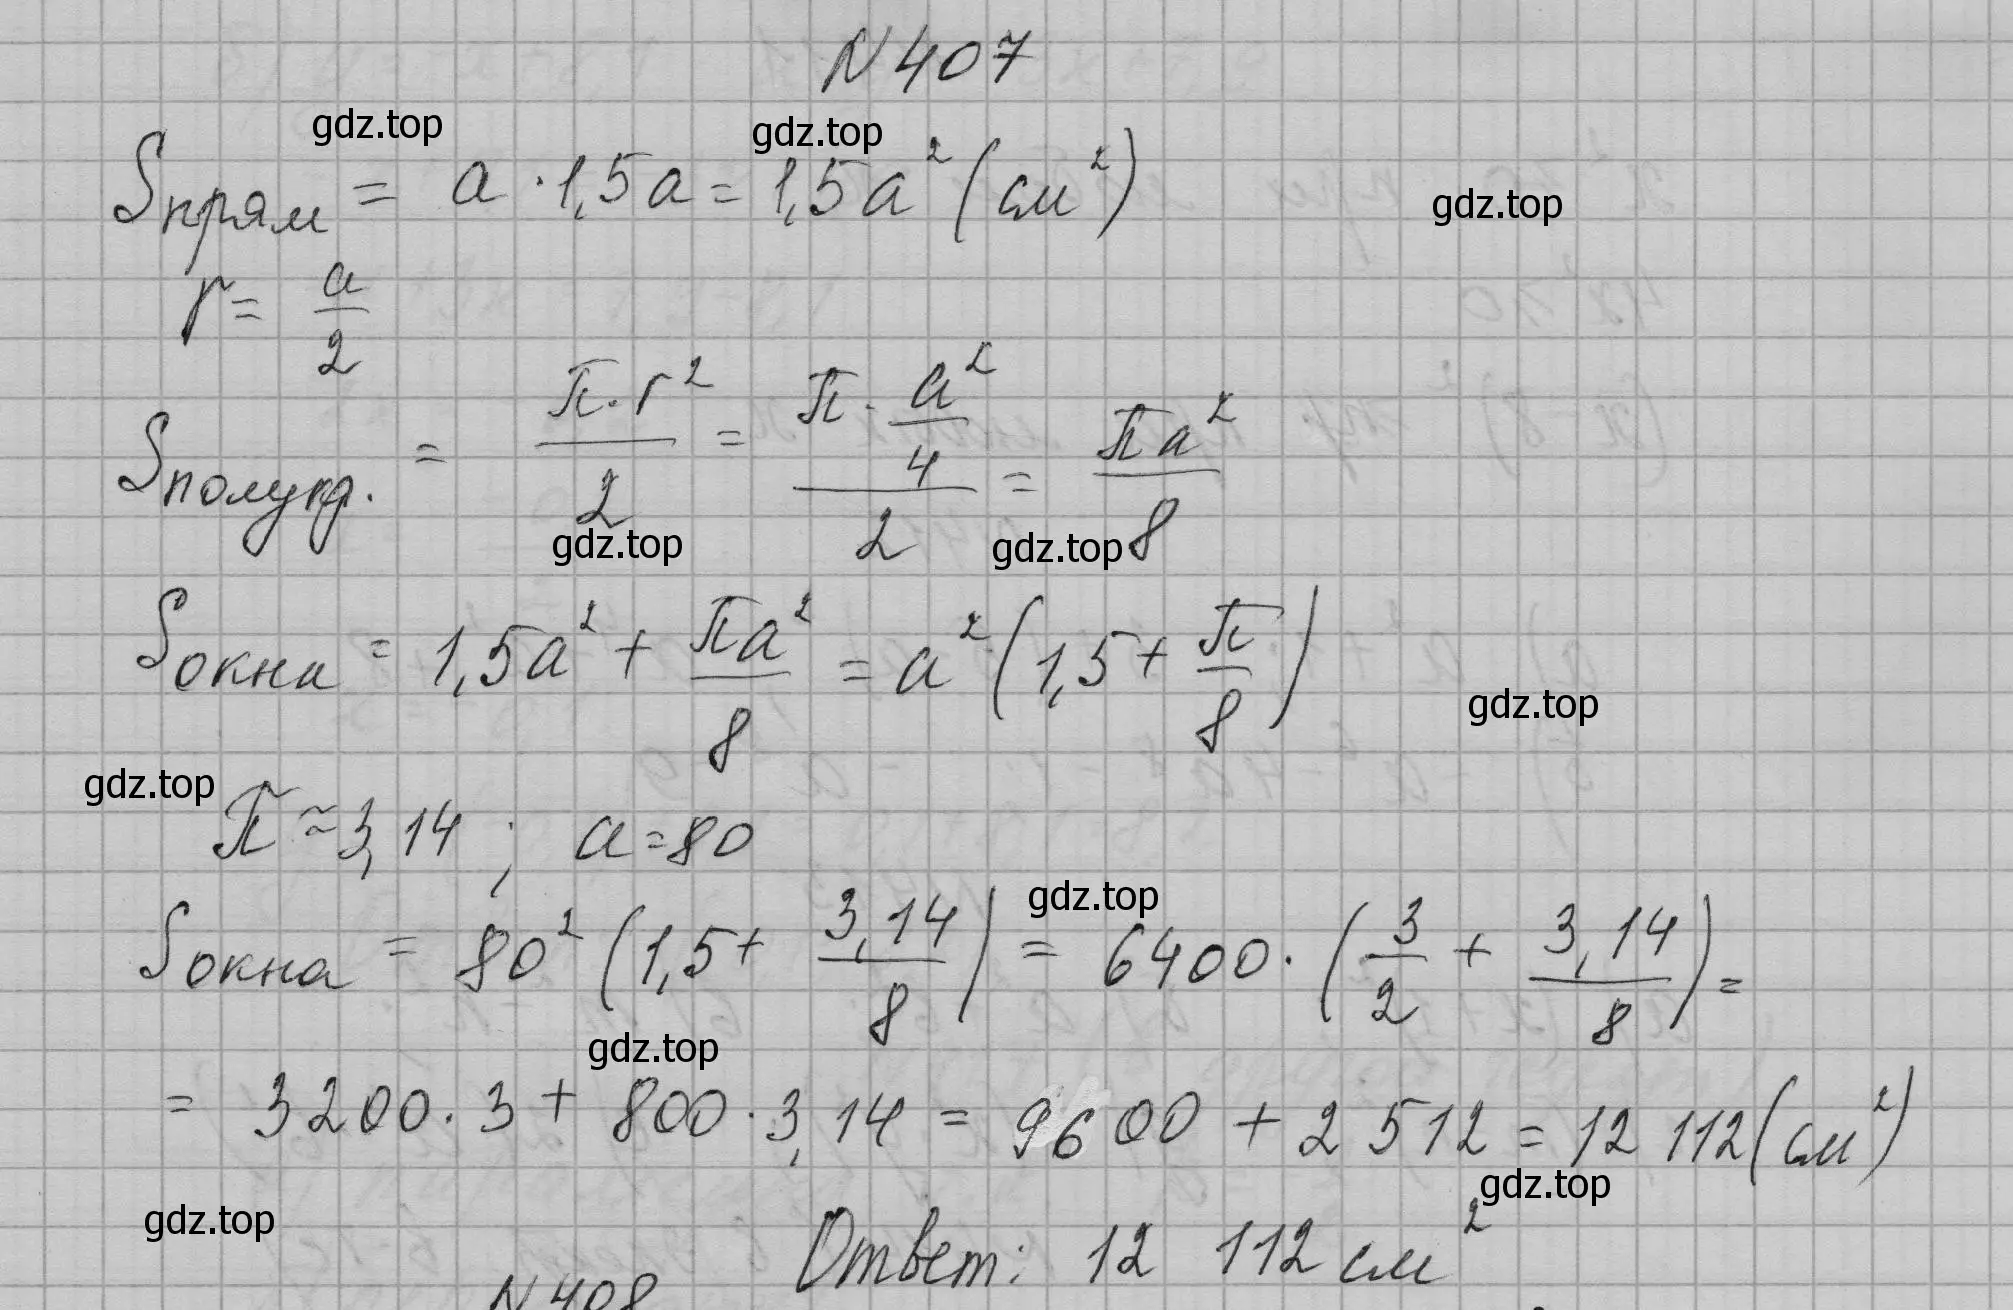 N 407
gdz.top gdz.top
Sпрям = a · 1,5a = 1,5a² (см²)
gdz.top
r = a/2
Sполукр. = π·r²/2 = (π · a²/4)/2 = πa²/8
gdz.top gdz.top
Sокна = 1,5a² + πa²/8 = a² (1,5 + π/8)
gdz.top
gdz.top
π ≈ 3,14 ; a = 80
gdz.top
Sокна = 80² (1,5 + 3,14/8) = 6400 · (3/2 + 3,14/8) =
gdz.top
= 3200 · 3 + 800 · 3,14 = 9600 + 2 512 = 12 112 (см²)
gdz.top
gdz.top
Ответ: 12 112 см²
N 408